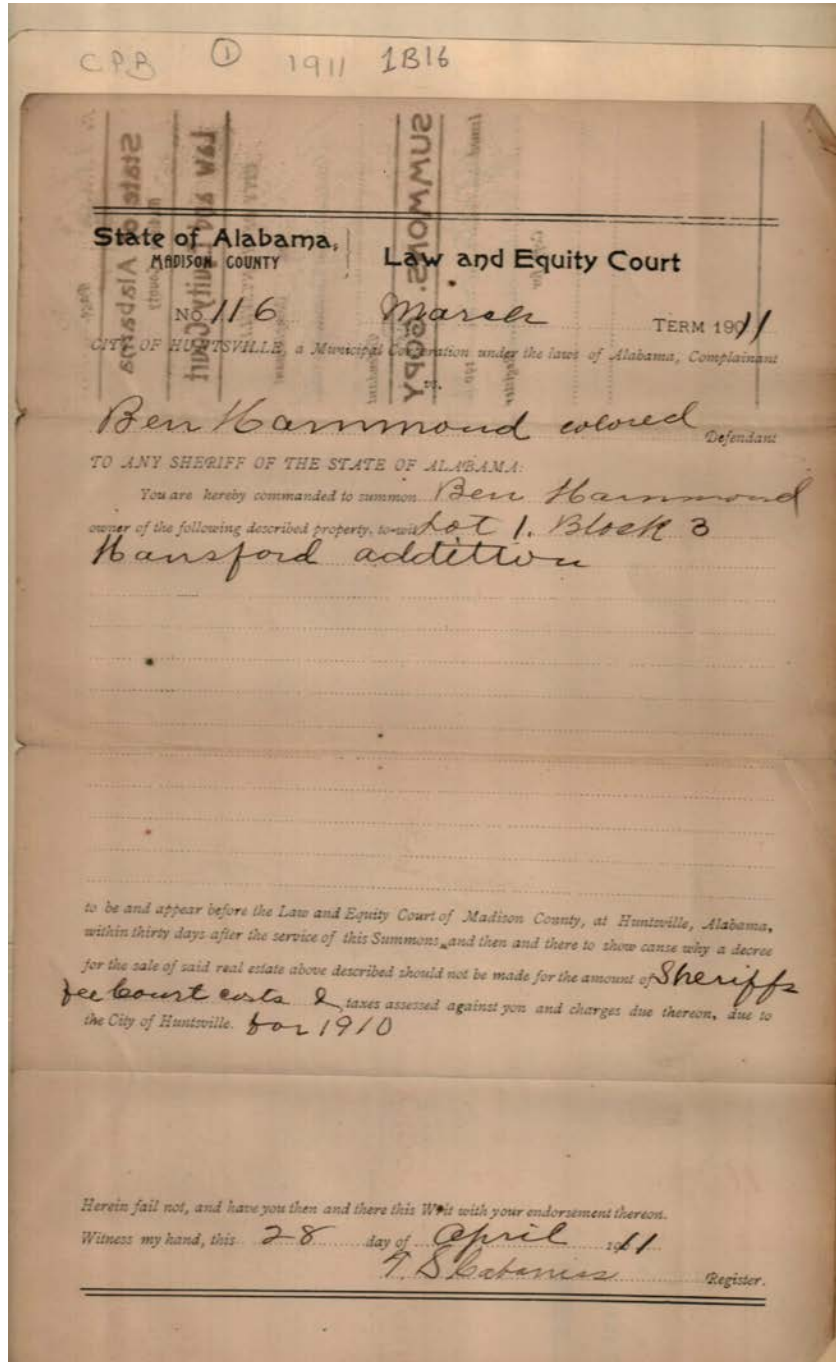 CPB ① 1911 1B16
State of Alabama,
MADISON COUNTY
Law and Equity Court
No. 116 March TERM 1911
CITY OF HUNTSVILLE, a Municipal Corporation under the laws of Alabama, Complainant
vs.
Ben Hammond colored Defendant
TO ANY SHERIFF OF THE STATE OF ALABAMA:
You are hereby commanded to summon Ben Hammond
owner of the following described property, to-wit Lot 1. Block 3
Hansford addition
to be and appear before the Law and Equity Court of Madison County, at Huntsville, Alabama,
within thirty days after the service of this Summons, and then and there to show cause why a decree
for the sale of said real estate above described should not be made for the amount of Sheriffs
fee Court costs & taxes assessed against you and charges due thereon, due to
the City of Huntsville. for 1910
Herein fail not, and have you then and there this Writ with your endorsement thereon.
Witness my hand, this 28 day of April 1911
T. S. Cabaniss Register.